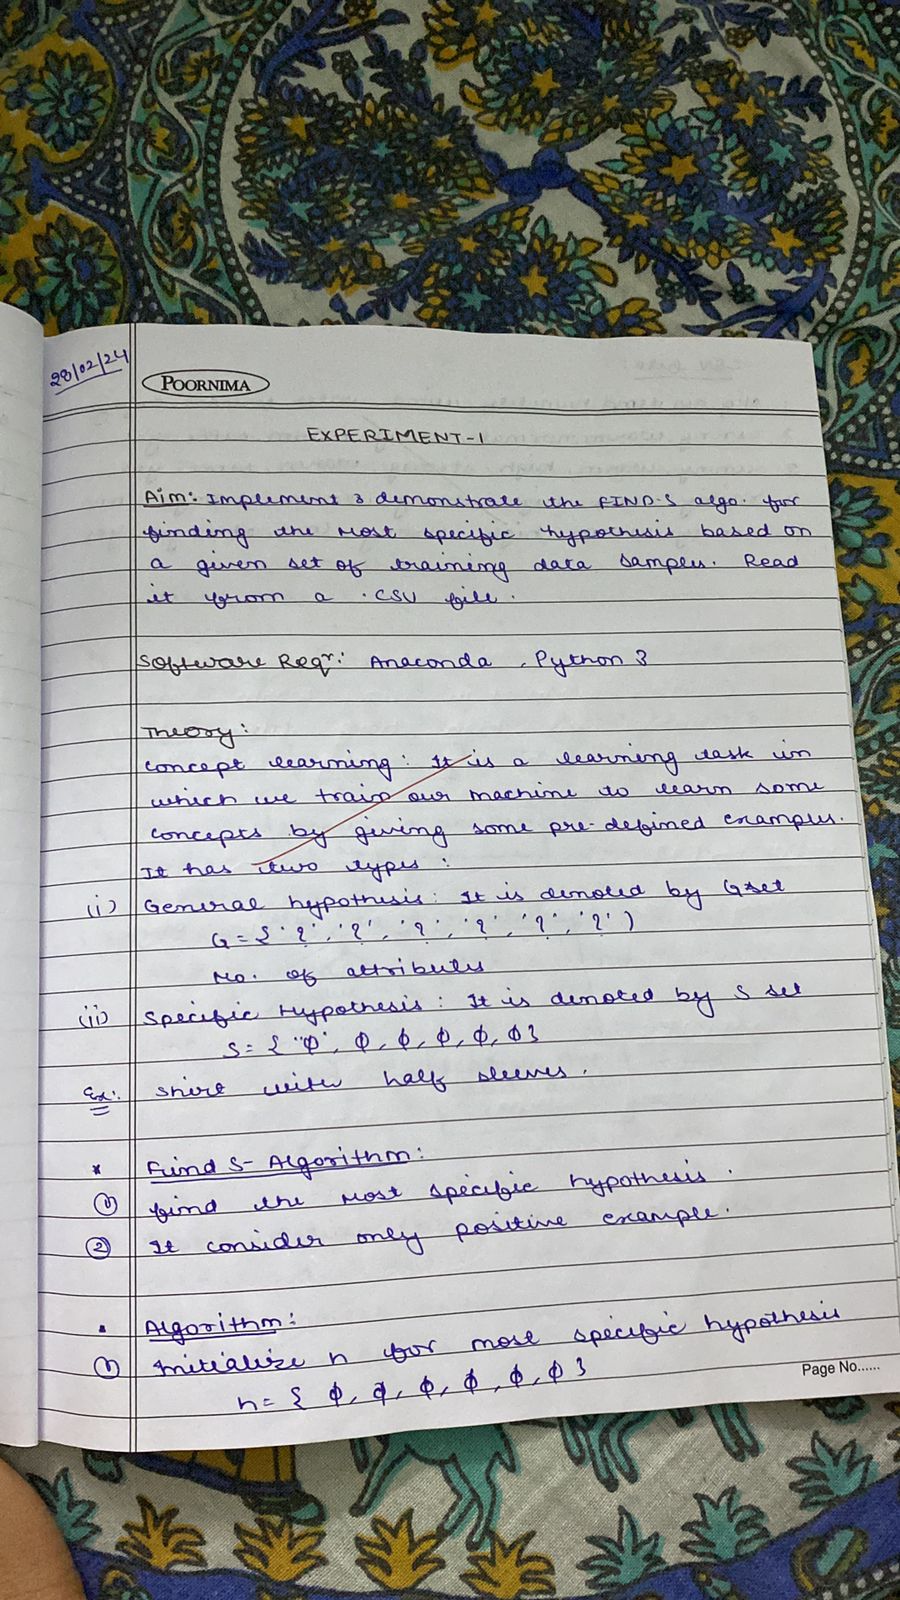 28/02/24
POORNIMA
EXPERIMENT-1
Aim: Implement & demonstrate the FIND-S algo. for
finding the most specific hypothesis based on
a given set of training data samples. Read
it from a .CSV file.
Software Reqr.: Anaconda, Python 3
Theory:
Concept learning: It is a learning task in
which we train our machine to learn some
concepts by giving some pre-defined examples.
It has two types:
(i) General hypothesis: It is denoted by G set
G = { '?', '?', '?', '?', '?', '?' )
No. of attributes
(ii) Specific Hypothesis: It is denoted by S set
S = { "ϕ", ϕ, ϕ, ϕ, ϕ, ϕ }
Ex: Shirt with half sleeves.
* Find S- Algorithm:
① find the most specific hypothesis.
② It consider only positive example.
• Algorithm:
① Initialize h for most specific hypothesis
h = { ϕ, ϕ, ϕ, ϕ, ϕ, ϕ }
Page No......